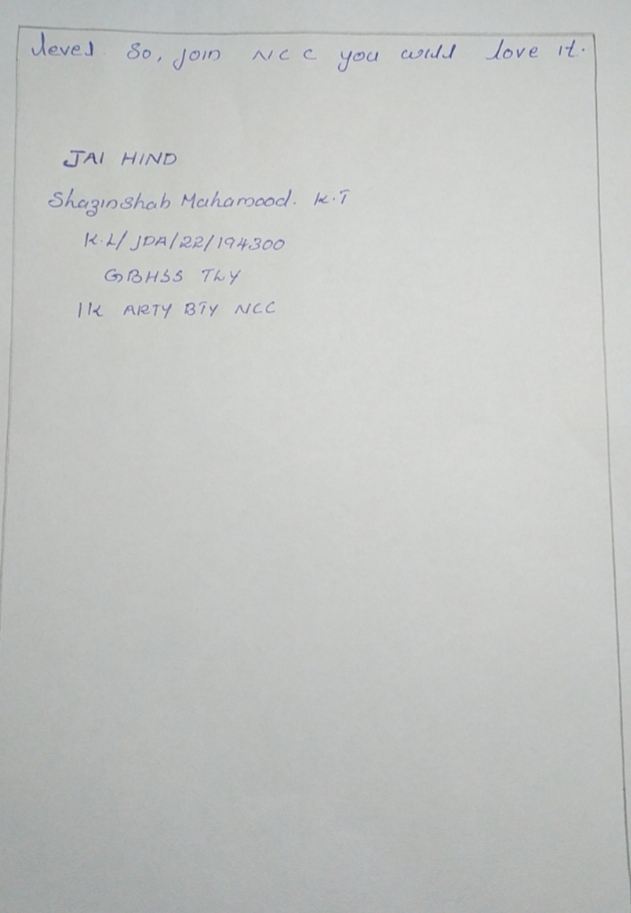 level so, join NCC you would love it.
JAI HIND
Shazinshah Mahamood. K.T
KL/JDA/22/194300
GBHSS TLY
1K ARTY BTY NCC